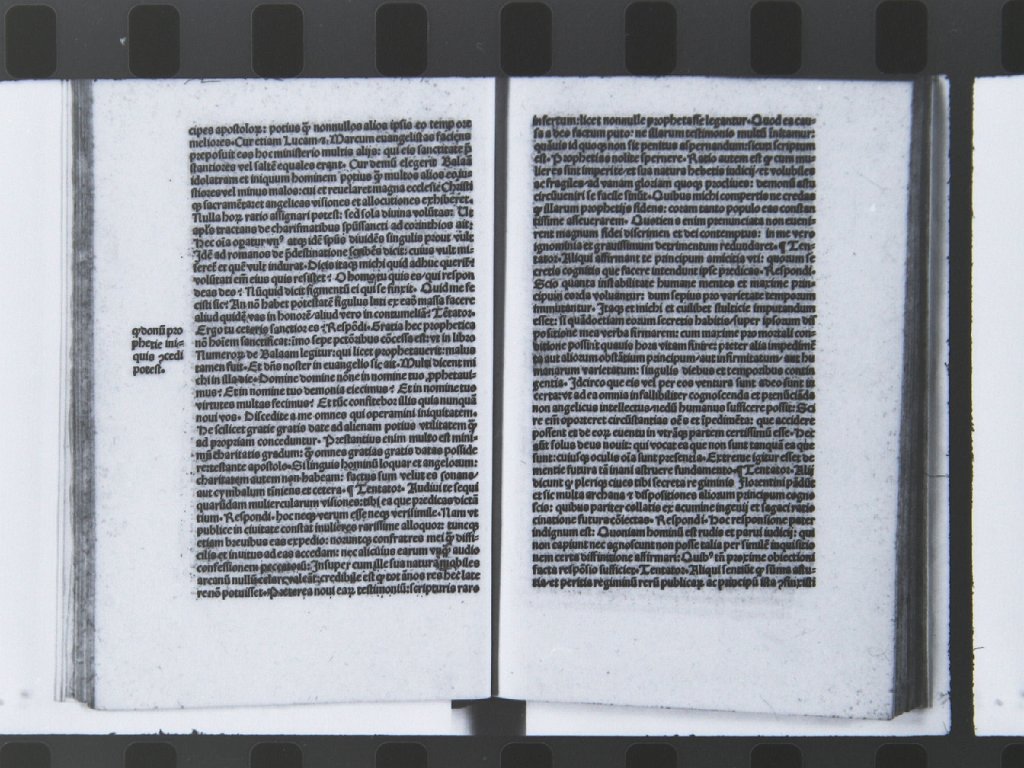 cipes apostoloꝝ: potius ꝙ̃ nonnullos alios ipsis eo temp ore
meliores. Cur etiam Lucam ⁊ Marcum euangelistas faciens
preposuit eos hoc ministerio multis alijs: qui eis sanctitate p̃
stantiores vel saltē equales erant. Cur demū elegerit Balaā
idolatram et iniquum hominem potius ꝙ̃ multos alios eo iu-
stiores vel minus malos: cui et reuelaret magna ecclesie Christi
ꝙ sacramēta: et angelicas visiones et allocutiones exhiberet.
Nulla hoꝝ ratio assignari potest: sed sola diuina volūtas. Ut
apls tractans de charismatibus spūssancti ad corinthios ait:
Hec oīa operatur vnꝰ atqꝫ idē spūs diuidēs singulis prout vult
Idē ad romanos de p̄destinatione sc̄bēs dicit: cuius vult mi-
seret̄ et quē vult indurat. Dicis itaqꝫ michi quid adhuc querit̄?
volūtati em̄ eius quis resistet? O homo tu quis es qui respon
deas deo? Nūquid dicit figmentū ei qui se finxit. Quid me fe
cisti sic? An nō habet potestatē figulus luti ex eadē massa facere
aliud quidē vas in honorē aliud vero in contumeliā? Tētator.
Ergo tu ceteris sanctior es? Respōdi. Gratia hec prophetica
nō hoīem sanctificat: īmo sepe pctōribus cōcessa est: vt in libro
Numeroꝝ de Balaam legitur: qui licet prophetauerit: malus
tamen fuit. Et dn̄s noster in euangelio sic ait. Multi dicent mi
chi in illa die. Domine domine nōne in nomine tuo ꝓphetaui-
mus? Et in nomine tuo demonia eiecimus? Et in nomine tuo
virtutes multas fecimus? Et tūc confitebor illis quia nunquā
noui vos. Discedite a me omnes qui operamini iniquitatem.
He scilicet gratie gratis date ad alienam potius vtilitatem ꝙ̃
ad propriam conceduntur. Prestantius enim multo est mini-
mū charitatis gradum: ꝙ̃ omnes gratias gratis datas posside
re: testante apostolo. Si linguis hominū loquar et angelorum:
charitatem autem non habeam: factus sum velut es sonans
aut cymbalum tiniens et cetera. ¶ Tentator. Audiui te sequi
quarūdam muliercularum visiones: tibi ea que predicas dictā
tium. Respondi. hoc neqꝫ verum esse neqꝫ verisimile. Nam vt
publice in ciuitate constat mulieres rarissime alloquor: tuncqꝫ
etiam breuibus eas expedio: noruntqꝫ confratres mei ꝙ̃ diffi-
cilis et inuitus ad eas accedam: nec alicuius earum vnꝙ̃ audio
confessionem peccatorū. Insuper cum ille sua natura mobiles
arcanū nullū celare valeāt: credibile est ꝙ tot ānos res hec late
re nō potuisset. Preterea noui eaꝝ testimoniū: scripturis raro
ꝙ donū pro
phetie ini-
quis ↄcedi
potest.
insertum: licet nonnulle prophetasse legantur. Quod ea cau-
sa a deo factum puto: ne illarum testimonio multū innitamur:
quāuis id quoqꝫ non sit penitus aspernandum: sicut scriptum
est. Prophetias nolite spernere. Ratio autem est ꝙ cum mu-
lieres sint imperite: et sua natura hebetis iudicij et volubiles
ac fragiles: ad vanam gloriam quoqꝫ procliues: demonū astu
circūueniri se facile sinūt. Quibus michi compertis ne credas
ꝙ illarum prophetijs fidens: coram tanto populo eas constan
tissime asseuerarem. Quotiens enim prenunciata non eueni-
rent magnum fidei discrimen et dei contemptus: in me vero
ignominia et grauissimum detrimentum redundaret. ¶ Ten-
tator. Aliqui affirmant te principum amicitia vti: quorum se
cretis cognitis que facere intendunt ipse predicas. Respondi.
Scio quanta instabilitate humane mentes et maxime prin-
cipum corda voluantur: dum sepius pro varietate temporum
immutantur. Itaqꝫ et michi et cuilibet stulticie imputandum
esset: si quādo etiam eorum secretis habitis super ipsorum dis
positione mea verba firmarem: cum maxime pro mortali con-
ditione possint quauis hora vitam finire: preter alia impedimē
ta aut aliorum obstātium principum aut infirmitatum aut hu
manarum varietatum: singulis diebus et temporibus contin
gentia. Idcirco que eis vel per eos ventura sunt adeo sunt in
certa: vt ad ea omnia infallibiliter cognoscenda et prenūcianda
non angelicus intellectus nedū humanus sufficere possit: Sci
re em̄ oporteret circūstantias oēs et īpedimēta: que accidere
possent et de eoꝝ euentu in vtrāqꝫ partem certissimū esse. Hec
aūt solus deus nouit: qui vocat ea que non sunt tanquā ea que
sunt: cuiusqꝫ oculis oīa sunt presentia. Extreme igitur esset de
mentie futura tā inani astruere fundamento. ¶ Tentator. Alij
dicunt ꝙ pleriqꝫ ciues tibi secreta regiminis Florentini pādūt
et sic multa archana ⁊ dispositiones aliorum principum cogno
scis: quibus pariter collatis ex acumine ingenij et sagaci ratio
cinatione futura cōiectas. Respondi. Hoc responsione pater
indignum est: Quoniam hominū est rudis et parui iudicij: qui
non capiunt nec agnoscunt non posse talia per similē inquisitio
nem certa diffinitione affirmari: Quibꝰ tn̄ proxime obiectioni
facta respōsio sufficiet. Tentator. Aliqui sentiūt ꝙ summa astu-
tia et peritia regiminū rerū publicaꝝ ac principū ista ↄfinxisti